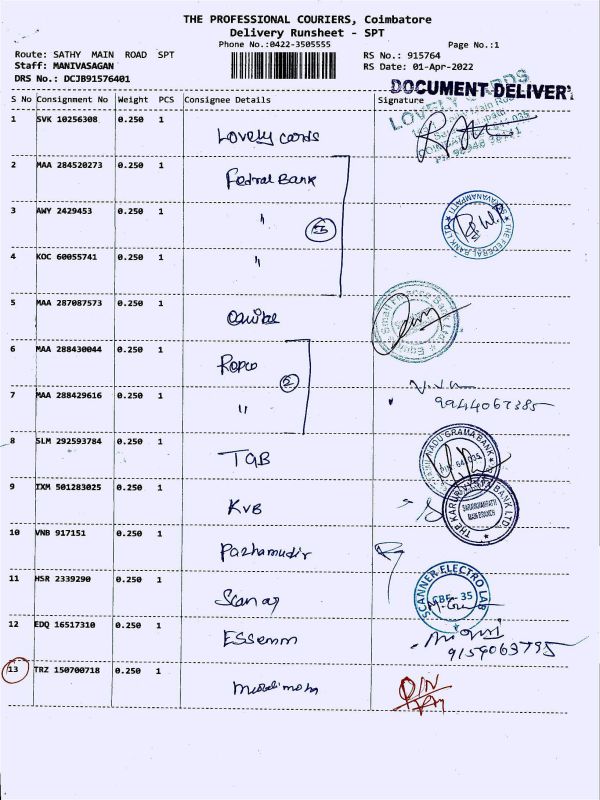 THE PROFESSIONAL COURIERS, Coimbatore
Delivery Runsheet - SPT
Phone No.:0422-3505555
Page No.:1
Route: SATHY MAIN ROAD SPT
RS No.: 915764
Staff: MANIVASAGAN
RS Date: 01-Apr-2022
DRS No.: DCJB91576401
DOCUMENT DELIVER
S No Consignment No Weight PCS Consignee Details Signature
LOVELY CARDS
1 SVK 10256308 0.250 1 Lovely cards
2 MAA 284520273 0.250 1 Fedral Bank
3 AWY 2429453 0.250 1 "
THE FEDERAL BANK LTD SARAVANAMPATTI
4 KOC 60055741 0.250 1 "
5 MAA 287087573 0.250 1
Small Finance Bank Ltd.
6 MAA 288430044 0.250 1 Repco
2
7 MAA 288429616 0.250 1 "
9944067385
8 SLM 292593784 0.250 1 TGB
NADU GRAMA BANK
9 IXM 501283025 0.250 1 KVB
THE KARUR VYSYA BANK LTD
10 VNB 917151 0.250 1 Pazhamudir
11 HSR 2339290 0.250 1
SCANNER ELECTRO LAB
CBE - 35
12 EDQ 16517310 0.250 1 Essemm
9159063795
13 TRZ 150700718 0.250 1